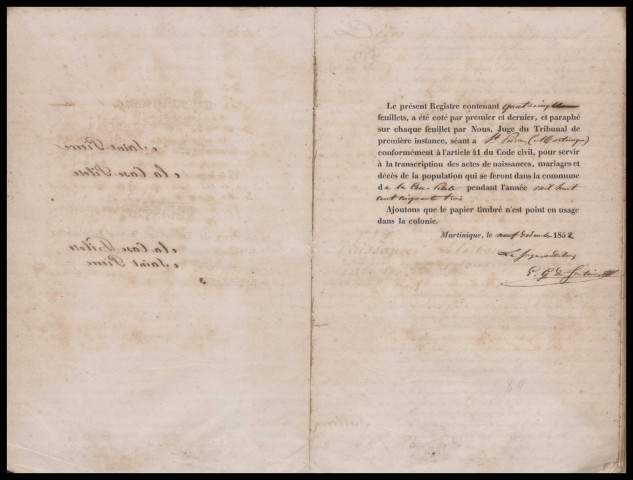 Le présent Registre contenant
feuillets, a été coté par premier et dernier, et paraphé
sur chaque feuillet par Nous, Juge du Tribunal de
première instance, séant à St Pierre (Martinique)
conformément à l'article 41 du Code civil, pour servir
à la transcription des actes de naissances, mariages et
décès de la population qui se feront dans la commune
de la Case-Pilote pendant l'année mil huit
cent cinquante trois
Ajoutons que le papier timbré n'est point en usage
dans la colonie.
Martinique, le neuf 1852
Le Juge
Saint Pierre
la Case Pilote
la Case Pilote
Saint Pierre